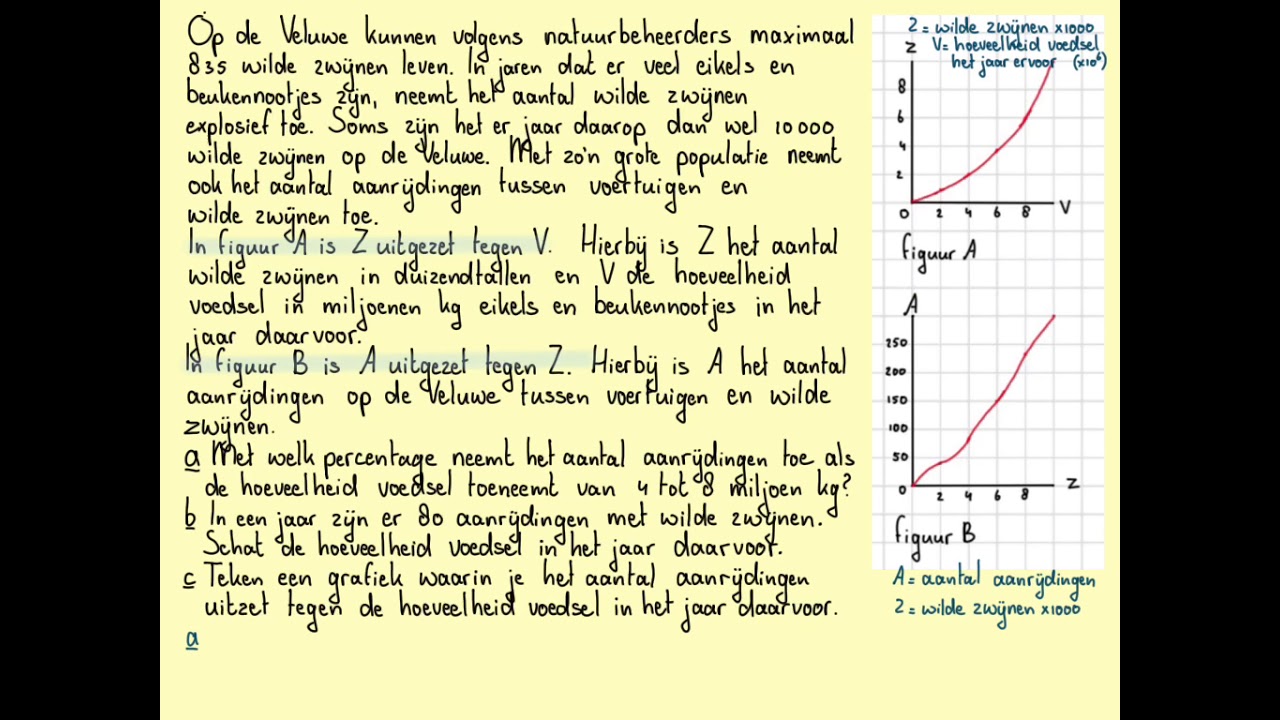 Op de Veluwe kunnen volgens natuurbeheerders maximaal
835 wilde zwijnen leven. In jaren dat er veel eikels en
beukennootjes zijn, neemt het aantal wilde zwijnen
explosief toe. Soms zijn het er jaar daarop dan wel 10 000
wilde zwijnen op de Veluwe. Met zo'n grote populatie neemt
ook het aantal aanrijdingen tussen voertuigen en
wilde zwijnen toe.
In figuur A is Z uitgezet tegen V. Hierbij is Z het aantal
wilde zwijnen in duizendtallen en V de hoeveelheid
voedsel in miljoenen kg eikels en beukennootjes in het
jaar daarvoor.
In figuur B is A uitgezet tegen Z. Hierbij is A het aantal
aanrijdingen op de Veluwe tussen voertuigen en wilde
zwijnen.
a Met welk percentage neemt het aantal aanrijdingen toe als
de hoeveelheid voedsel toeneemt van 4 tot 8 miljoen kg?
b In een jaar zijn er 80 aanrijdingen met wilde zwijnen.
Schat de hoeveelheid voedsel in het jaar daarvoor.
c Teken een grafiek waarin je het aantal aanrijdingen
uitzet tegen de hoeveelheid voedsel in het jaar daarvoor.
a
Z = wilde zwijnen x1000
Z V= hoeveelheid voedsel
het jaar ervoor (x10⁶)
8
6
4
2
0 2 4 6 8 V
figuur A
A
250
200
150
100
50
0 2 4 6 8 Z
figuur B
A = aantal aanrijdingen
Z = wilde zwijnen x1000